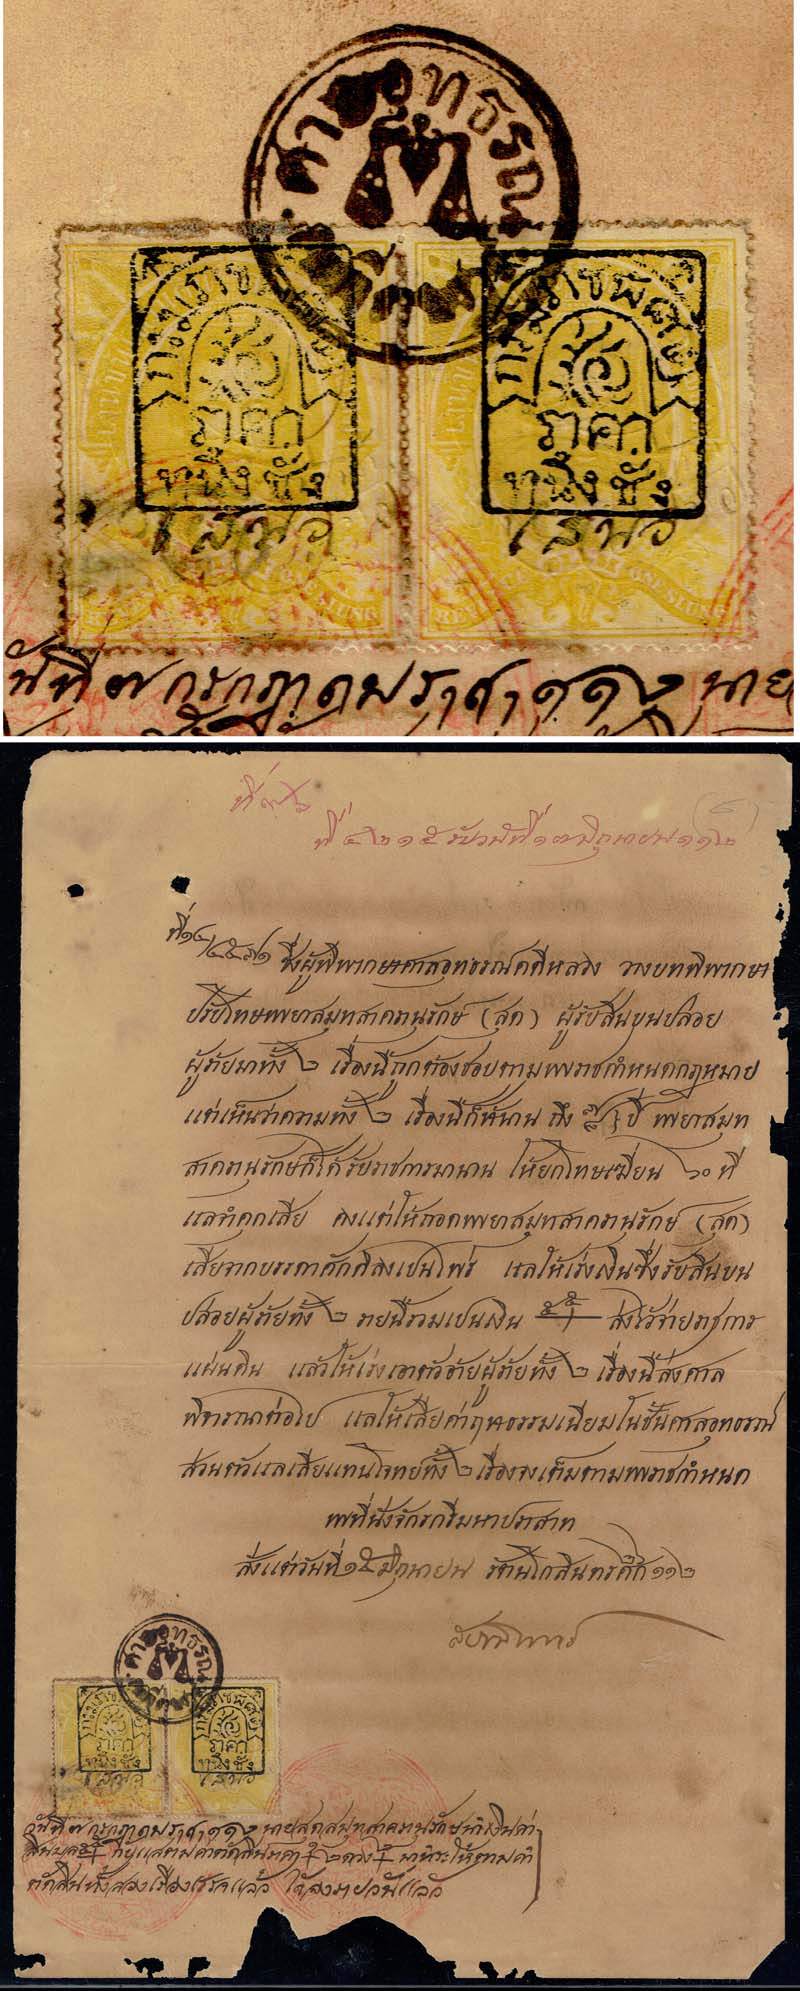 ศาลอุทธรณ์
กรมราชพัสดุ
กรมราชพัสดุ
ราคา
ราคา
หนึ่งชั่ง
หนึ่งชั่ง
เสนอ
เสนอ
REVENUE ONE SLUNG
REVENUE ONE SLUNG
วันที่ ๗ กรกฎาคม ร,ศ, ๑๑๒ นาย
ที่ ๔๒๑๕ รับวันที่ ๑๗ มิถุนายน ๑๑๒
ซึ่งผู้พิพากษาศาลอุทธรณ์คดีหลวง วางบทพิพากษา
ปรับโทษพระยาสมุทสาครานุรักษ์ (สุด) ผู้รับสินบนปล่อย
ผู้ร้ายมาทั้ง ๒ เรื่องนี้ถูกต้องชอบตามพระราชกำหนดกฎหมาย
แต่เห็นว่าความทั้ง ๒ เรื่องนี้ก็ช้านาน ถึง ปี พระยาสมุท
สาครานุรักษ์ก็ได้รับราชการมานาน ให้ยกโทษเฆี่ยน ๖๐ ที
แลจำคุกเสีย คงแต่ให้ถอดพระยาสมุทสาครานุรักษ์ (สุด)
เสียจากบรรดาศักดิลงเปนไพร่ แลให้เร่งเงินซึ่งรับสินบน
ปล่อยผู้ร้ายทั้ง ๒ รายนี้รวมเปนเงิน ส่งไว้จ่ายราชการ
แผ่นดิน แล้วให้เร่งเอาตัวอ้ายผู้ร้ายทั้ง ๒ เรื่องนี้ส่งศาล
พิจารณาต่อไป แลให้เสียค่าฤชาธรรมเนียมในชั้นศาลอุทธรณ์
ส่วนตัวแลเสียแทนโจทย์ทั้ง ๒ เรื่องจงเต็มตามพระราชกำหนด
พระที่นั่งจักรกรีมหาปราสาท
สั่งแต่วันที่ ๑๕ มิถุนายน รัตนโกสินทรศก ๑๑๒
สยามินทร์
ศาลอุทธรณ์
กรมราชพัสดุ
กรมราชพัสดุ
ราคา
ราคา
หนึ่งชั่ง
หนึ่งชั่ง
เสนอ
เสนอ
วันที่ ๗ กรกฎาคม ร,ศ, ๑๑๒ นายสุดสมุทสาครานุรักษนำเงินค่า
ตัดสินทั้งสองเรื่องเสรจแล้ว ได้ลง